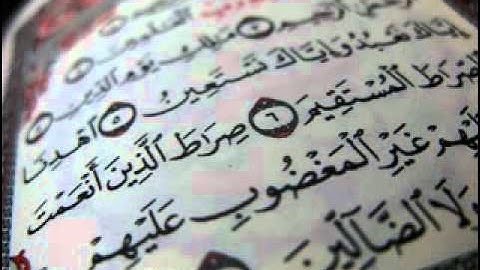 الرحمن الرحيم ملك يوم الدين
إياك نعبد وإياك نستعين ٥ اهدنا
الصراط المستقيم ٦ صراط الذين أنعمت
عليهم غير المغضوب عليهم
ولا الضالين